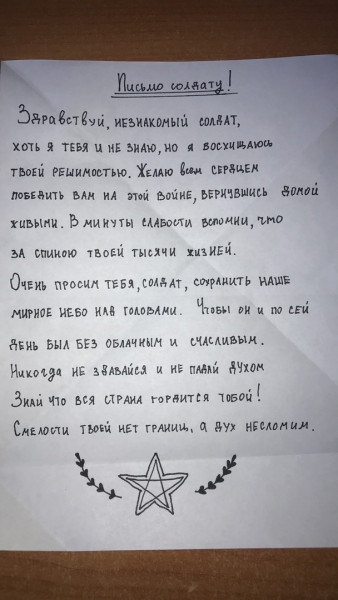 Письмо солдату!
Здравствуй, незнакомый солдат,
хоть я тебя и не знаю, но я восхищаюсь
твоей решимостью. Желаю всем сердцем
победить вам на этой войне, вернувшись домой
живыми. В минуты слабости вспомни, что
за спиною твоей тысячи жизней.
Очень просим тебя, солдат, сохранить наше
мирное небо над головами. Чтобы он и по сей
день был без облачным и счасливым.
Никогда не здавайся и не падай духом
Знай что вся страна гордится тобой!
Смелости твоей нет границ, а дух несломим.